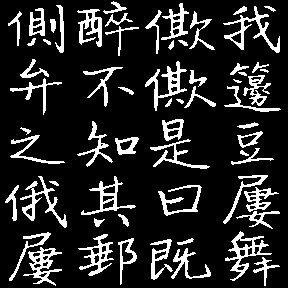 我籩豆屢舞
僛僛是曰既
醉不知其郵
側弁之俄屢